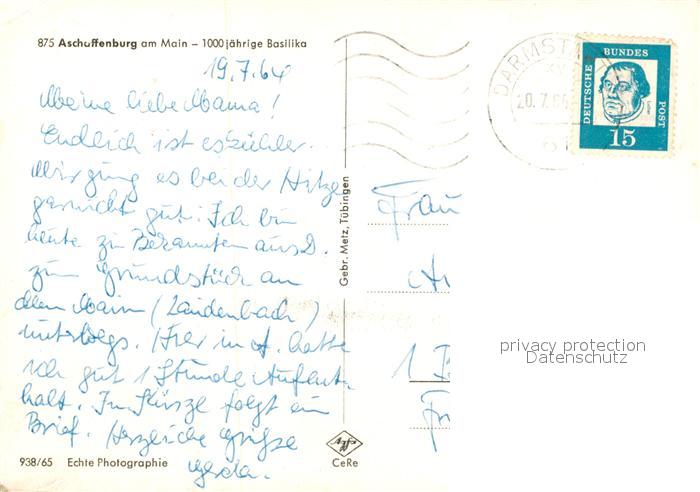 875 Aschaffenburg am Main – 1000 jährige Basilika
19.7.64
Meine liebe Mama!
Endlich ist es kühler.
Mir ging es bei der Hitze
gar nicht gut. Ich bin
heute zu Bekannten aus D.
zum Grundstück an
dem Main (Laudenbach)
unterwegs. Hier in A. hatte
ich gut 1 Stunde Aufent-
halt. In Kürze folgt ein
Brief. Herzliche Grüße
Gerda.
938/65 Echte Photographie
Gebr. Metz, Tübingen
CeRe
DARMST
20.7.64
DEUTSCHE
BUNDES
POST
15
Frau
1 B
privacy protection
Datenschutz